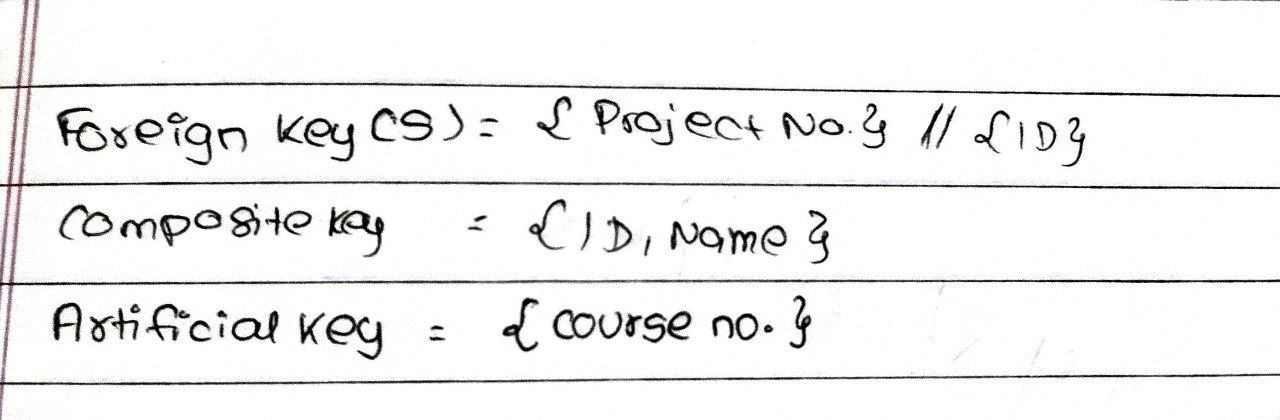 Foreign key(s) = { Project No.} // {ID}
Composite key = {ID, Name}
Artificial key = {course no.}